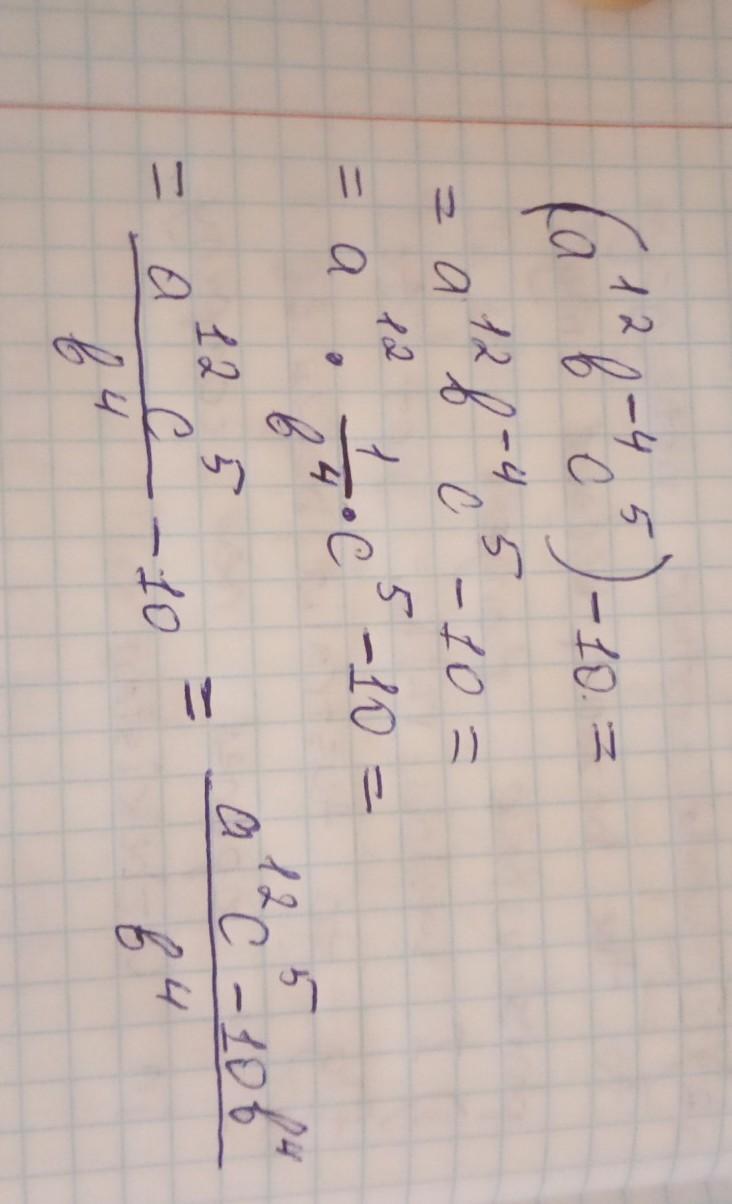 (a¹² b⁻⁴ c⁵) - 10 =
= a¹² b⁻⁴ c⁵ - 10 =
= a¹² · 1/b⁴ · c⁵ - 10 =
= a¹² c⁵/b⁴ - 10 = (a¹² c⁵ - 10b⁴)/b⁴